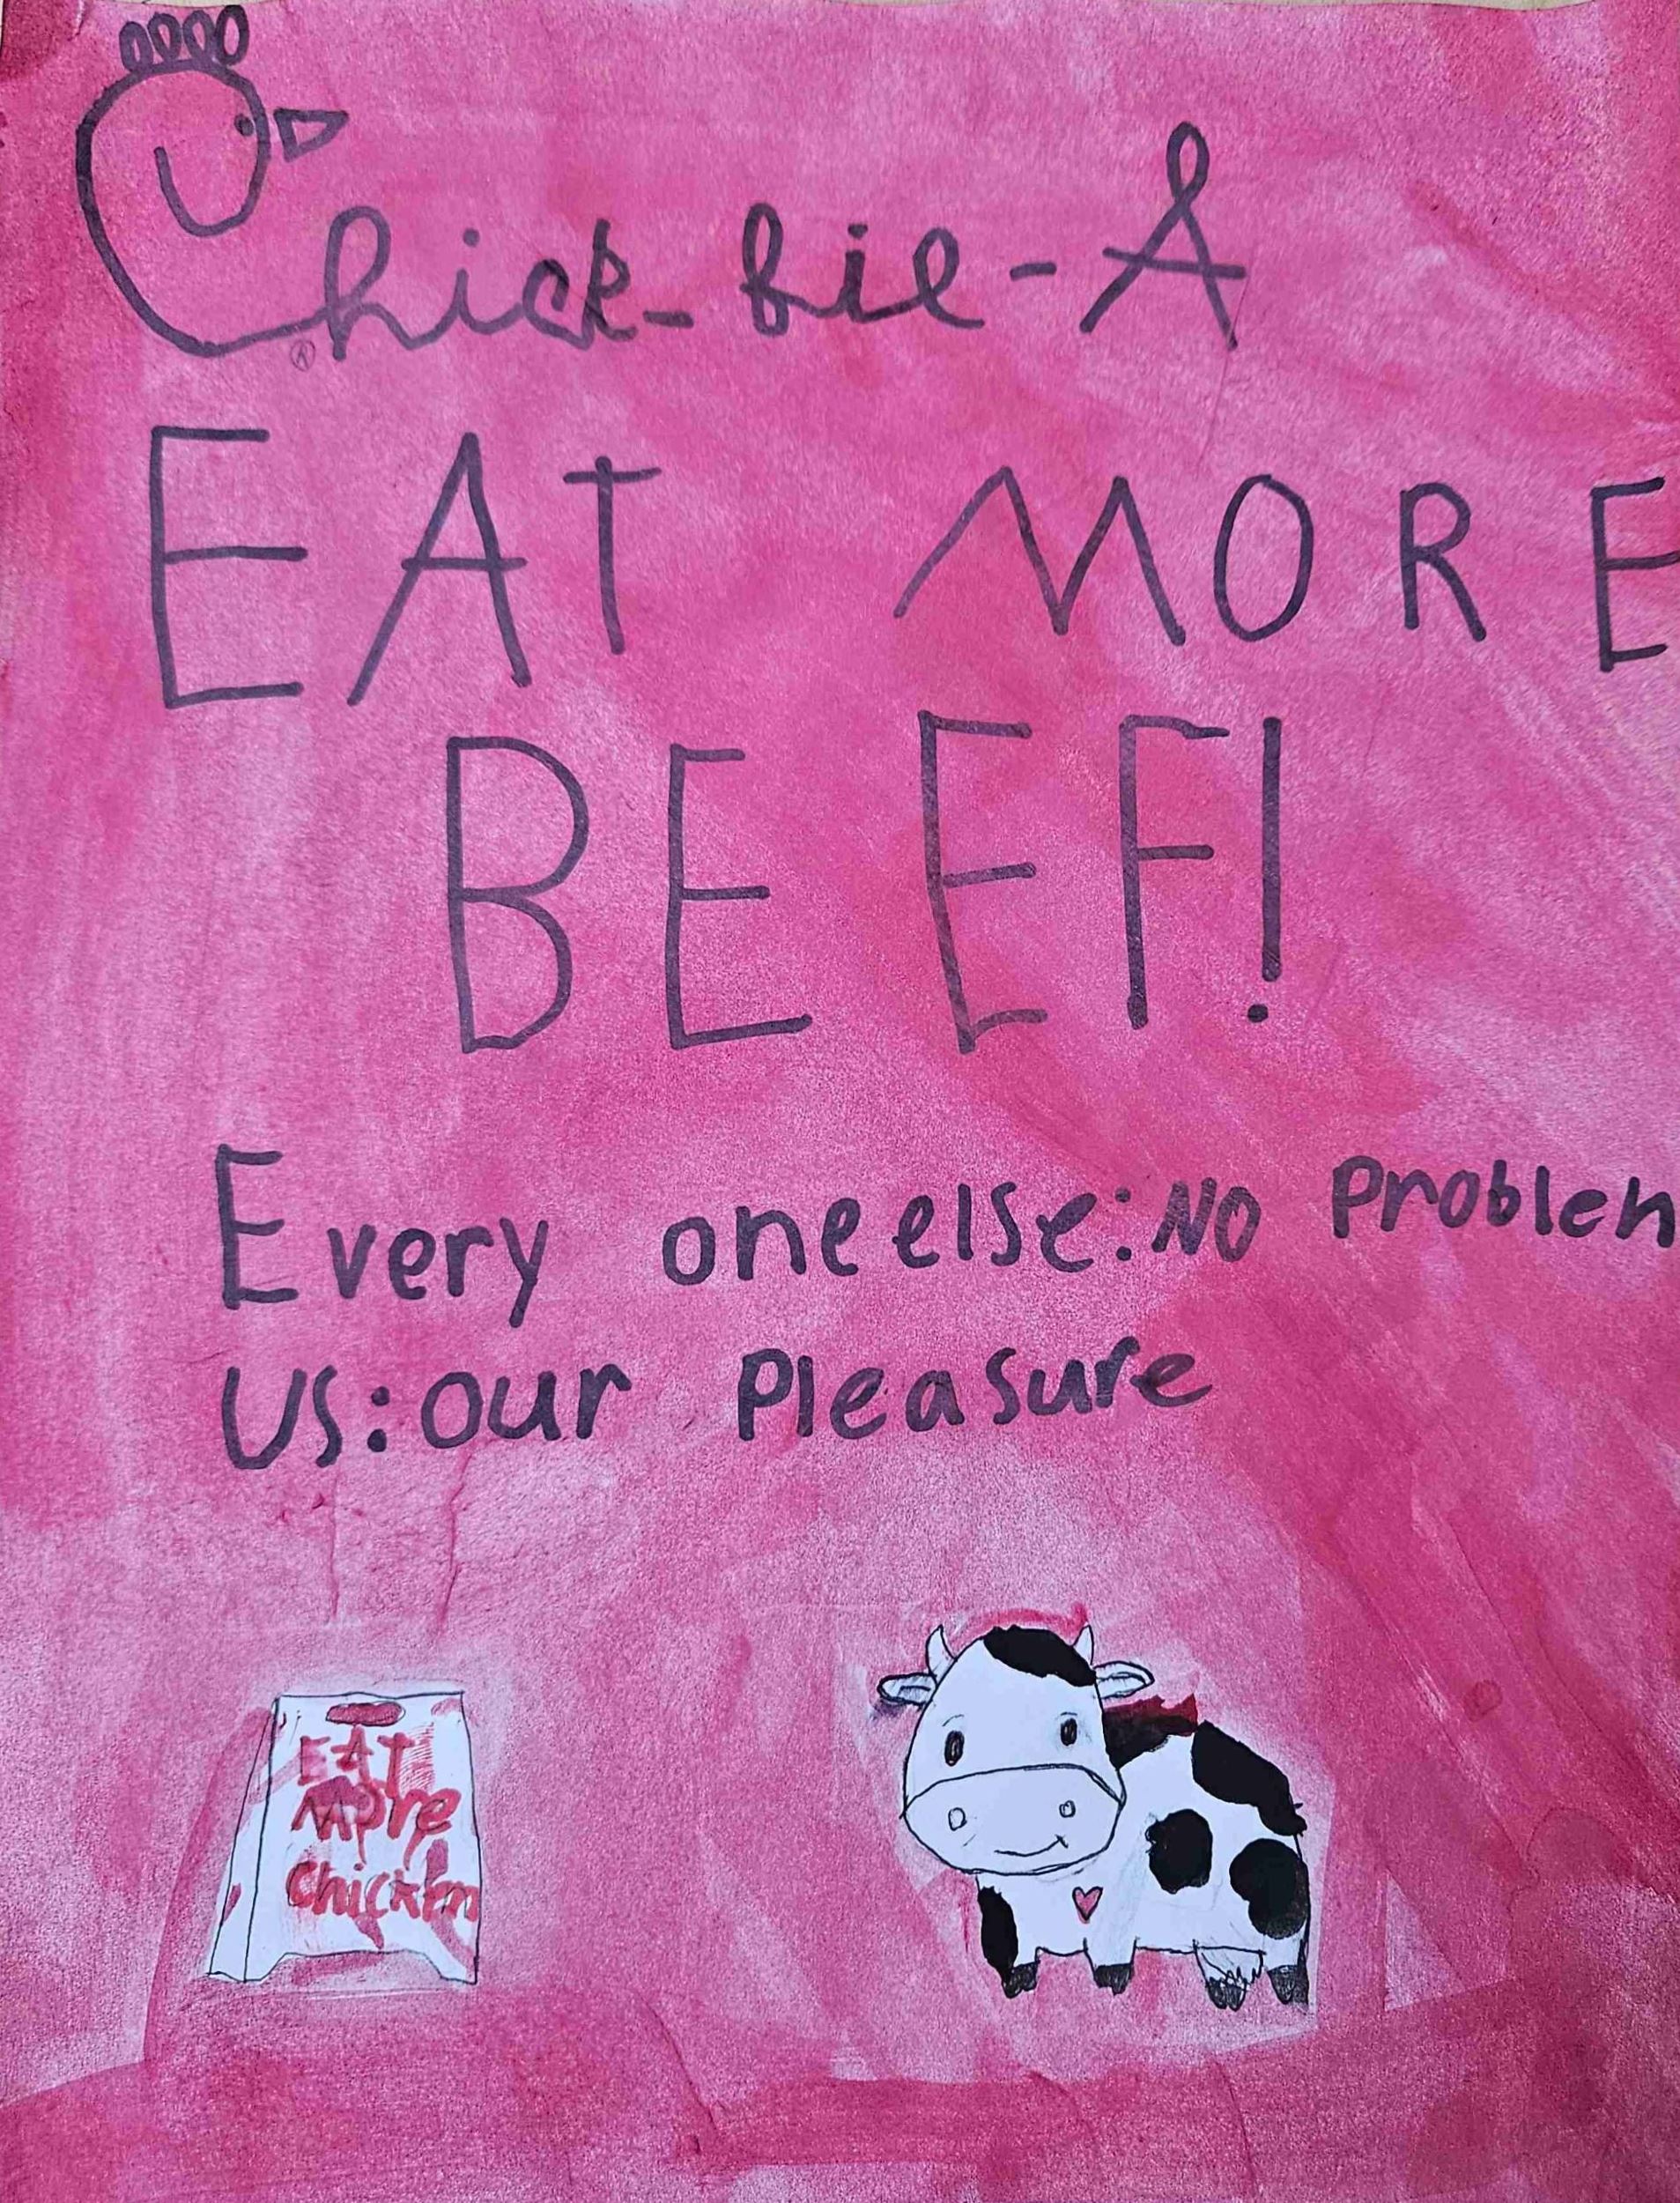 Chick-fil-A
®
EAT MORE
BEEF!
Every one else: NO Problem
Us: our Pleasure
EAT
More
Chicken